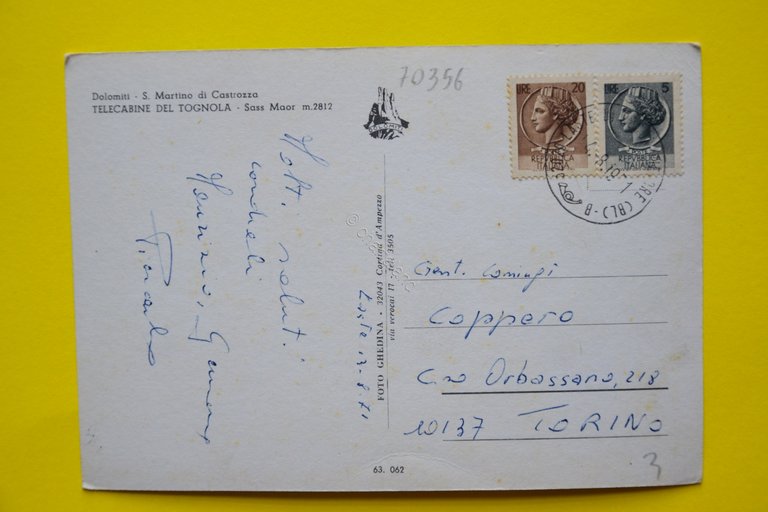 Dolomiti - S. Martino di Castrozza
TELECABINE DEL TOGNOLA - Sass Maor m.2812
70356
DOLOMITI
LIRE 20
POSTE
REPVBBLICA
ITALIANA
LIRE 5
POSTE
REPVBBLICA
ITALIANA
(BL) - B
Molt. saluti
cordiali
Piercarlo
12-8-71
FOTO GHEDINA - 32043 Cortina d'Ampezzo
via verocai 17 - Tel. 3505
Gent. Coniugi
Coppero
C.so Orbassano, 218
10137 TORINO
3
63. 062